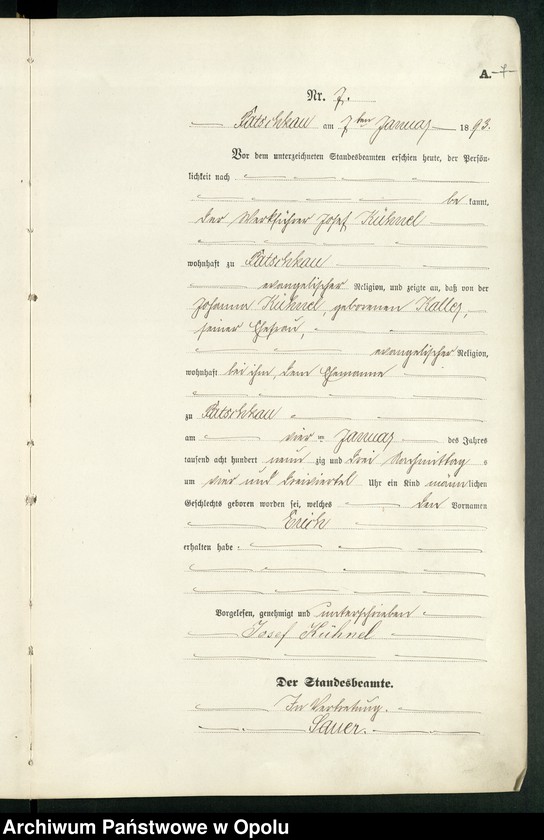 A.
Nr. 7.
Patschkau am 7ten Januar 1893.
Vor dem unterzeichneten Standesbeamten erschien heute, der Persön-
lichkeit nach
be kannt,
der Werkführer Josef Kühnel
wohnhaft zu Patschkau
evangelischer Religion, und zeigte an, daß von der
Johanna Kühnel, geborenen
seiner Ehefrau,
evangelischer Religion,
wohnhaft bei ihm, dem Ehemanne
zu Patschkau
am vier ten Januar des Jahres
tausend acht hundert neun zig und drei Nachmittag s
um vier und dreiviertel Uhr ein Kind männ lichen
Geschlechts geboren worden sei, welches den Vornamen
Erich
erhalten habe:
Vorgelesen, genehmigt und unterschrieben
Josef Kühnel
Der Standesbeamte.
In Vertretung.
Sauer.
Archiwum Państwowe w Opolu